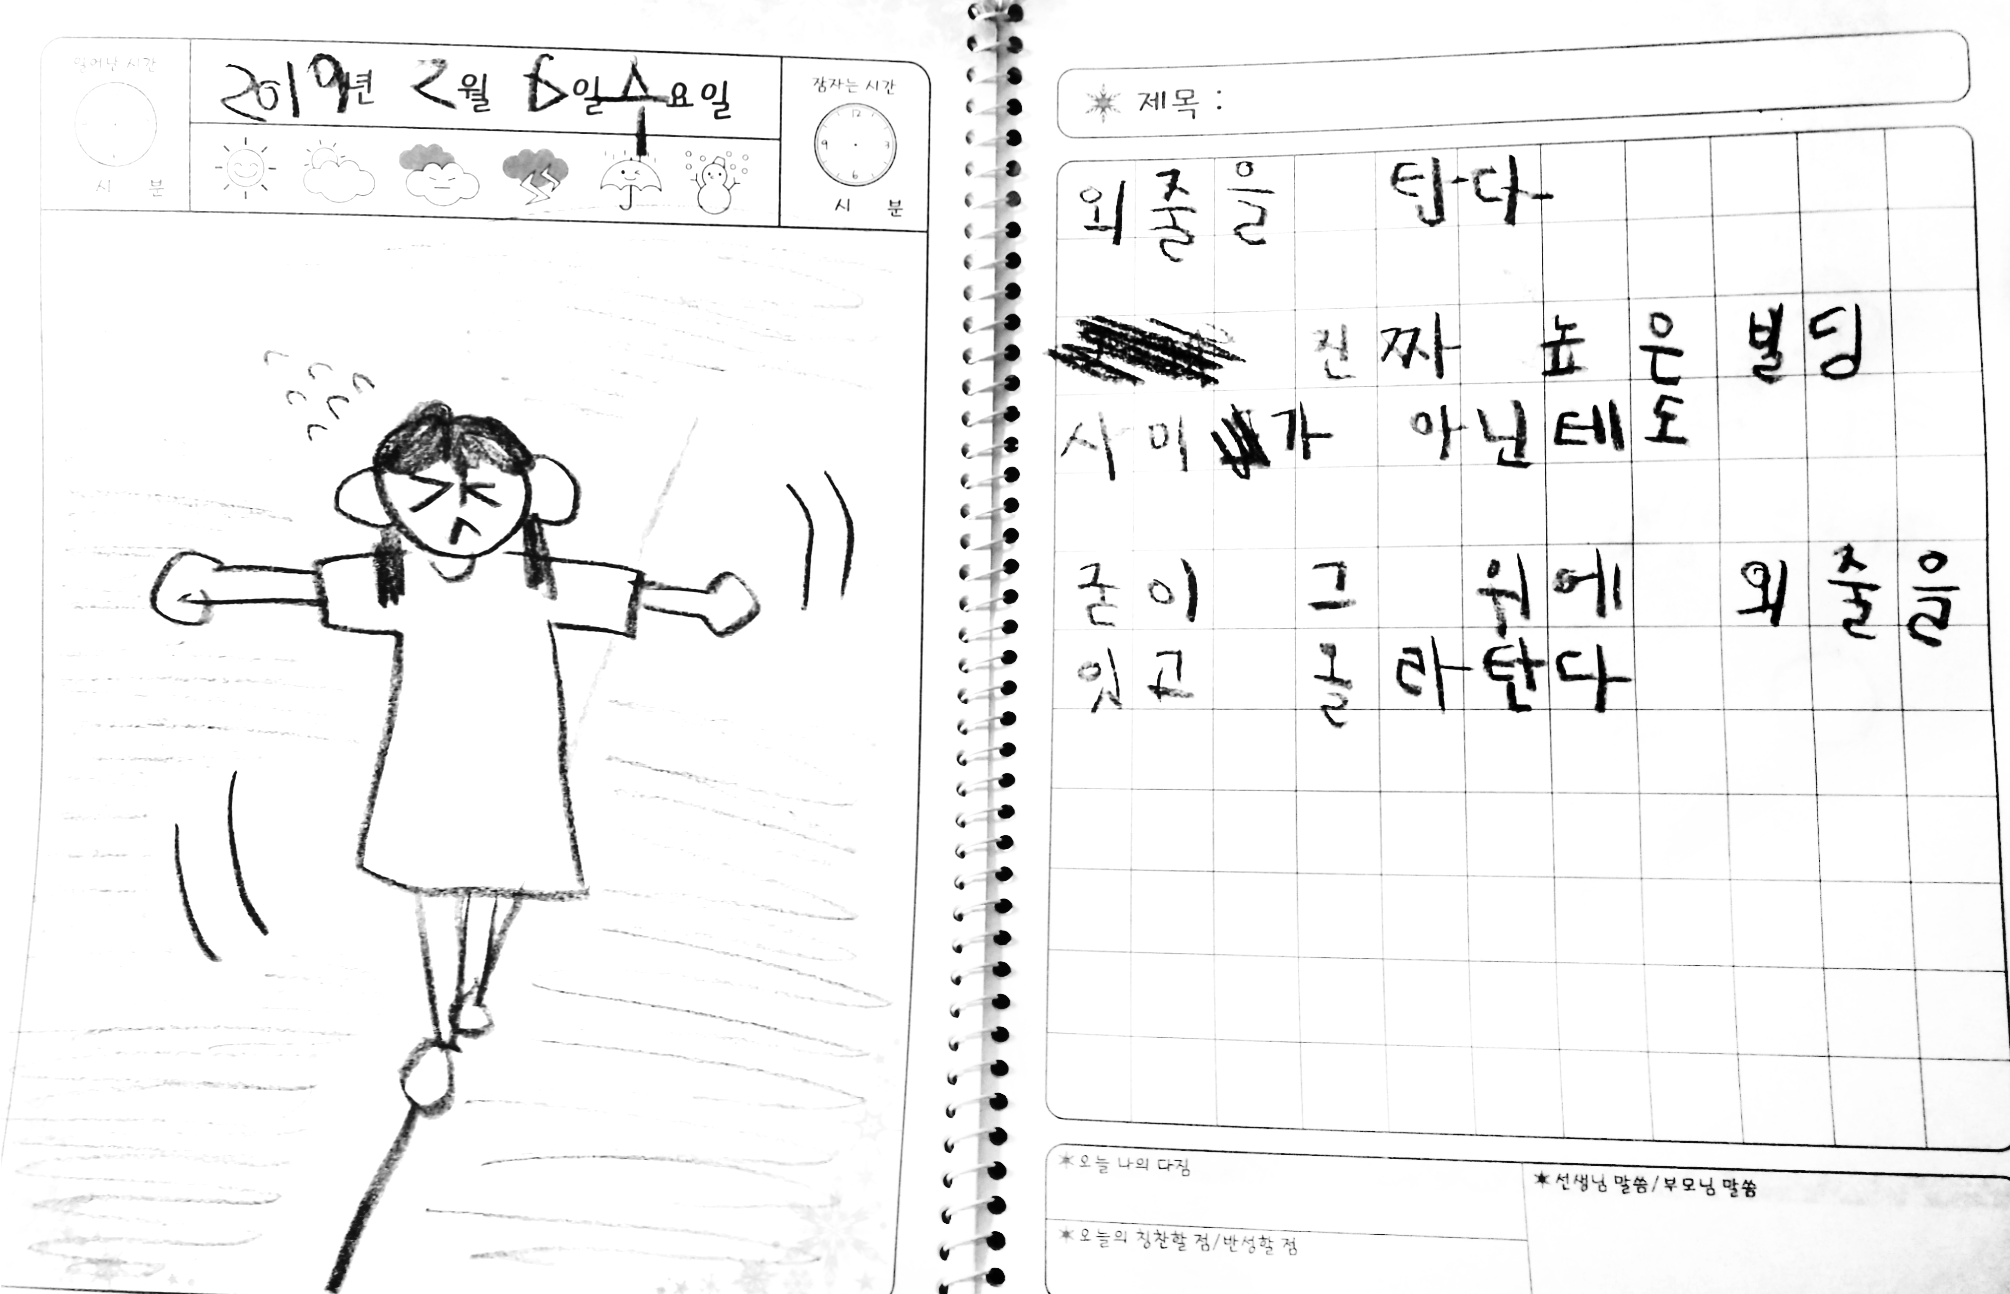 일어난 시간
2019년 2월 6일 수요일
잠자는 시간
12
3
6
9
시 분
시 분
제목 :
외줄을 탄다
진짜 높은 빌딩
사이가 아닌테도
굳이 그 위에 외줄을
잇고 올라탄다
오늘 나의 다짐
선생님 말씀/부모님 말씀
오늘의 칭찬할 점/반성할 점